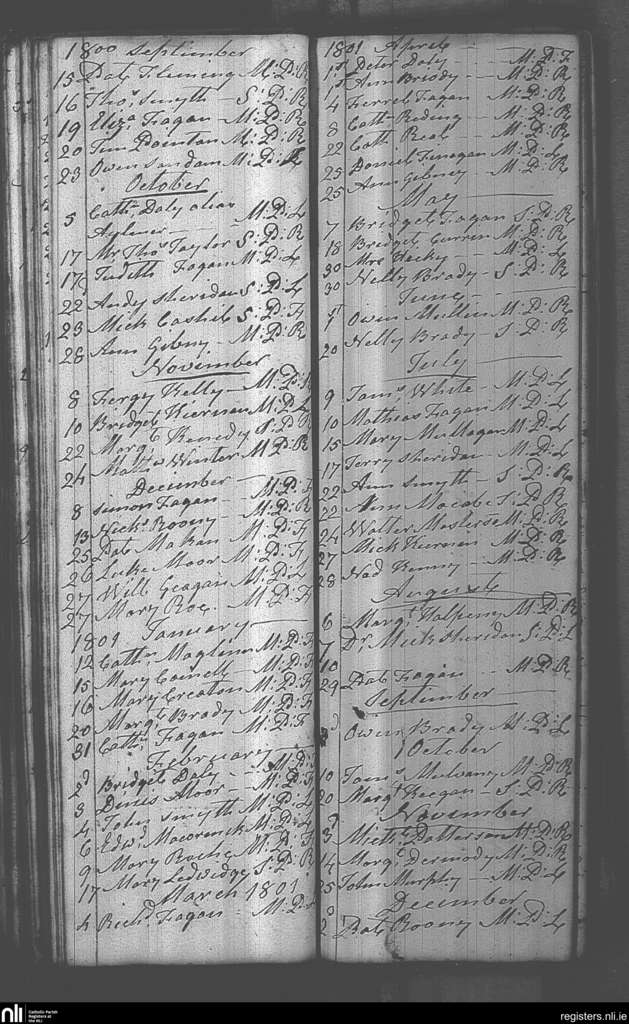 1800 September
15 Pat Fleming M:D:R
16 Thos Smyth - S:D:R
19 Eliza Fagan - M:D:R
20 M:D:R
23 Owen M:D:
October
5 Cathn Daly alias
Aylmer - M:D:L
17 Mr Thos Taylor S:D:R
17 Judith Fagan M:D:L
22 Andy Sheridan S:D:L
23 Mick Cashel S:D:F
28 Ann Gibny - M:D:R
November
8 Fergy Kelly - M:D:
10 Bridget Kiernan M:D:L
22 Margt Kenedy S:D:R
24 Winter M:D:R
December
8 Simon Fagan - M:D:F
13 Nichs Rooney M:D:R
25 Pat M:D:F
26 Luke Moor M:D:F
27 Will Geagan M:D:L
27 Mary Roe. M:D:F
1801 January
12 Cathn M:D:F
15 Mary M:D:F
16 Mary Creaton M:D:F
20 Margt Brady M:D:F
31 Cathn Fagan M:D:F
February
2d Bridget Daly - M:D:
3 Denis Moor - M:D:F
4 John Smyth M:D:L
6 Edwd M:D:L
9 Mary Roche M:D:F
17 Mary Ledwidge S:D:R
March 1801
4 Richd Fagan - M:D:L
1801 April
1st Peter Daly - M:D:F
1st Ann Brody - M:D:R
4 Ferrel Fagan - M:D:R
8 Cath M:D:R
22 Cath Real - M:D:R
25 Daniel Finagan M:D:L
25 Ann Gibney - M:D:R
May
7 Bridget Fagan S:D:R
18 Bridget Curren M:D:R
30 Mrs M:D:L
30 Nelly Brady - S:D:R
June
1st Owen Mullen M:D:R
20 Nelly Brady - S:D:R
July
9 Jams White - M:D:L
10 Mathias Fagan M:D:L
15 Mary Mullagan M:D:L
17 Terry Sheridan - M:D:L
22 Ann Smyth - S:D:R
22 Ann Macabe S:D:R
24 Walter M:D:R
27 Mick Kiernan M:D:R
28 Nad Kenny - M:D:R
August
6 Margt Halpeny M:D:R
7 Dr Mick Sheridan S:D:L
10
29 Pat Fagan - M:D:R
September
Owen Brady M:D:L
October
10 Jams Mulvany M:D:R
20 Margt Keegan - S:D:R
November
3d Michl Patterson M:D:R
14 Margt Dermody M:D:R
25 John Murphy - M:D:L
December
2d Pat Rooney M:D:L
nli Catholic Parish
Registers at
the NLI
registers.nli.ie